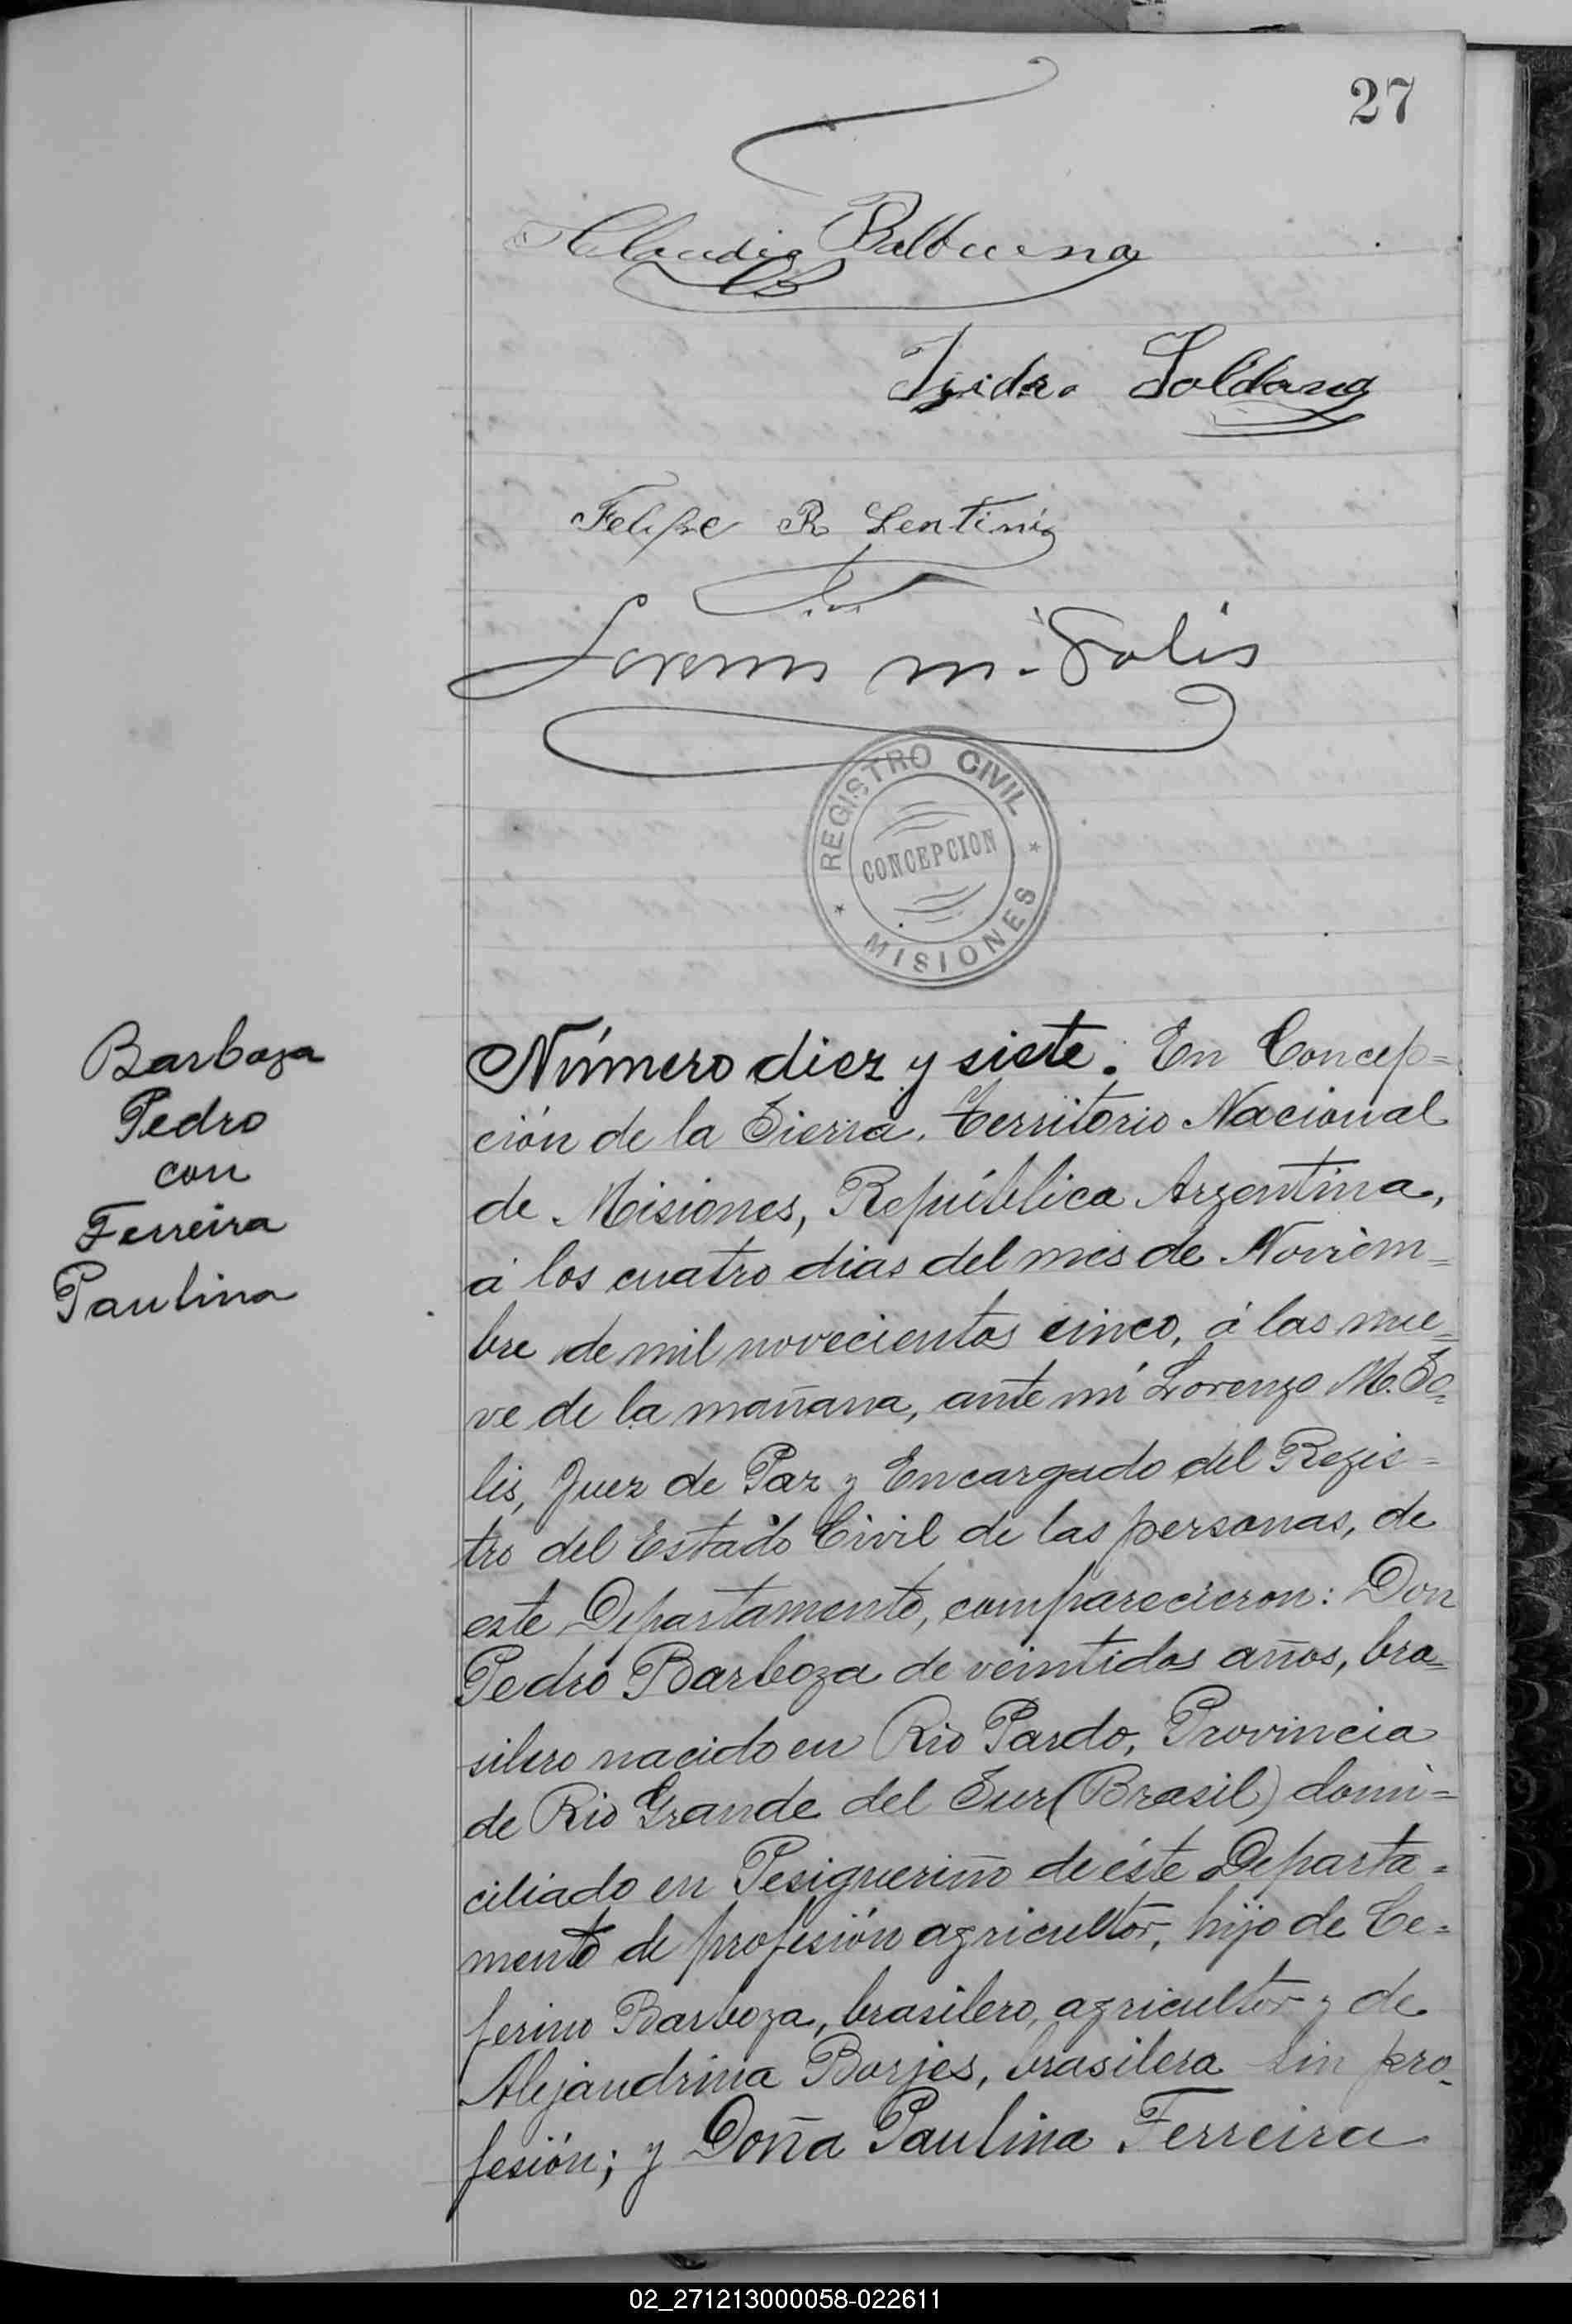 27
Claudio Balbuena
CB
Isidro Soldang
Felipe R Lentini
Lorenzo M. Solis
REGISTRO CIVIL
CONCEPCION
MISIONES
Barboza
Pedro
con
Ferreira
Paulina
Número diez y siete. En Concep=
ción de la Sierra, Territorio Nacional
de Misiones, República Argentina,
á los cuatro dias del mes de Noviem=
bre de mil novecientos cinco, á las nue=
ve de la mañana, ante mí Lorenzo M. So=
lis, Juez de Paz y Encargado del Regis=
tro del Estado Civil de las personas, de
este Departamento, comparecieron: Don
Pedro Barboza de veintidos años, bra=
silero nacido en Rio Pardo, Provincia
de Rio Grande del Sur (Brasil) domi=
ciliado en Pesigueriño de éste Departa=
mento de profesión agricultor, hijo de Ce=
ferino Barboza, brasilero, agricultor y de
Alejandrina Borjes, brasilera sin pro=
fesión; y Doña Paulina Ferreira
02_271213000058-022611